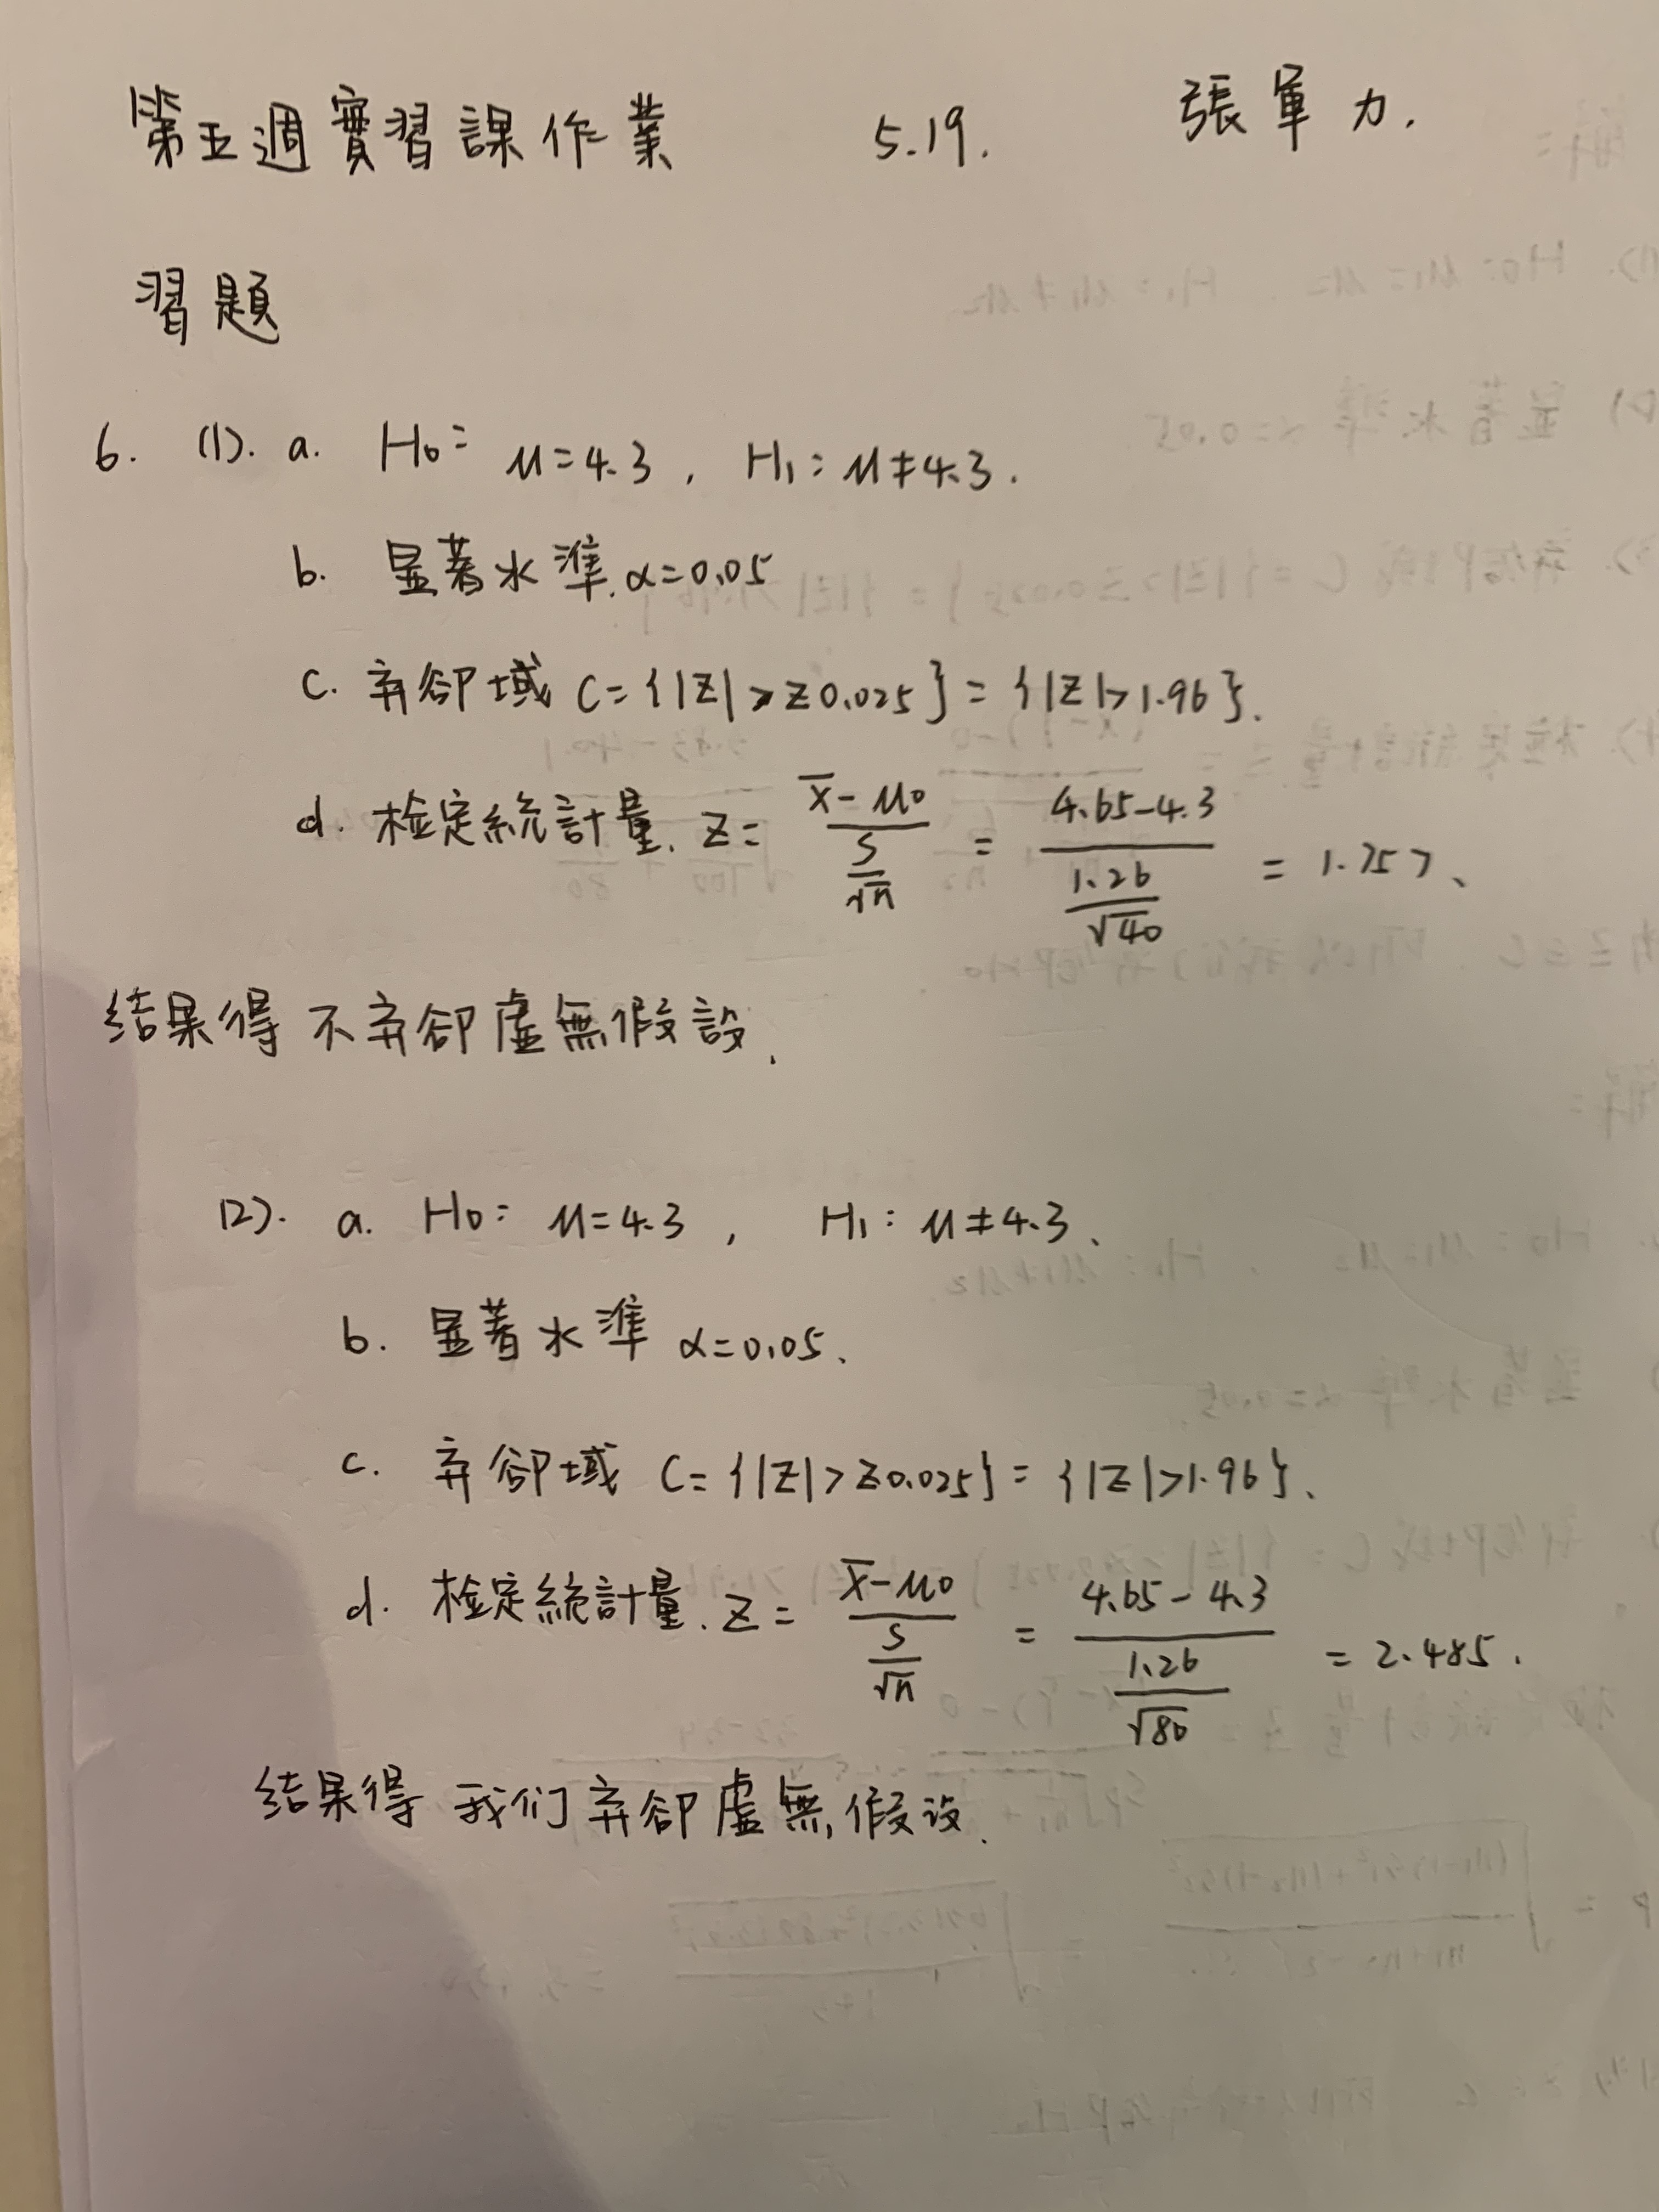 第五週實習課作業 5.19. 張軍力.
習題
6. (1). a. H₀: μ=4.3, H₁: μ≠4.3.
b. 显著水準. α=0.05
c. 弃卻域 C={|Z|>Z0.025}={|Z|>1.96}.
d. 檢定統計量. Z= (x̄-μ₀)/(S/√n) = (4.65-4.3)/(1.26/√40) = 1.757、
结果得 不弃卻虛無假設.
(2). a. H₀: μ=4.3, H₁: μ≠4.3、
b. 显著水準 α=0.05、
c. 弃卻域 C={|Z|>Z0.025}={|Z|>1.96}、
d. 檢定統計量. Z= (x̄-μ₀)/(S/√n) = (4.65-4.3)/(1.26/√80) = 2.485.
结果得 我们弃卻虛無假设.